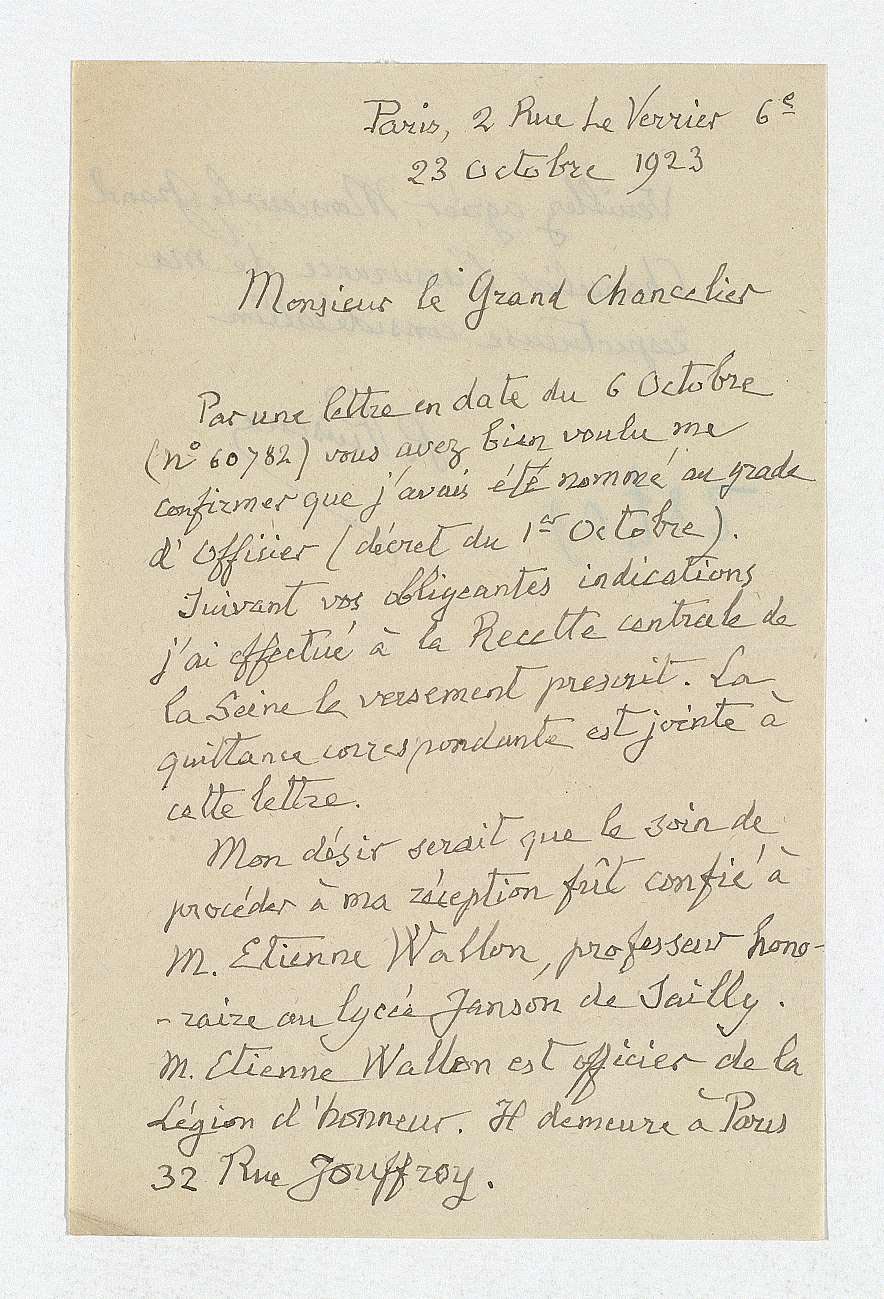 Paris, 2 Rue Le Verrier 6e
23 Octobre 1923
Monsieur le Grand Chancelier
Par une lettre en date du 6 Octobre
(n° 60782) vous avez bien voulu me
confirmer que j'avais été nommé au grade
d'Officier (décret du 1er Octobre).
Suivant vos obligeantes indications
j'ai effectué à la Recette centrale de
la Seine le versement prescrit. La
quittance correspondante est jointe à
cette lettre.
Mon désir serait que le soin de
procéder à ma réception fût confié à
M. Etienne Wallon, professeur hono-
-raire au lycée Janson de Sailly.
M. Etienne Wallon est officier de la
Légion d'honneur. Il demeure à Paris
32 Rue Jouffroy.